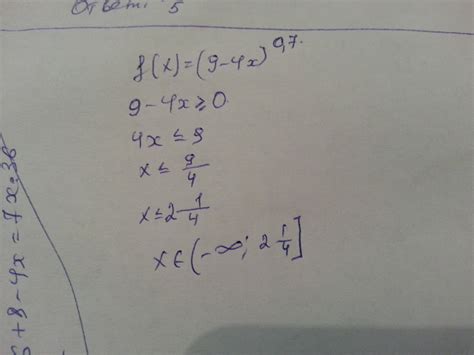 Ответ: 5
f(x)=(9-4x)^0,7.
9-4x≥0
4x≤9
x≤9/4
x≤2 1/4
x∈(-∞; 2 1/4]
+8-4x=7x=36